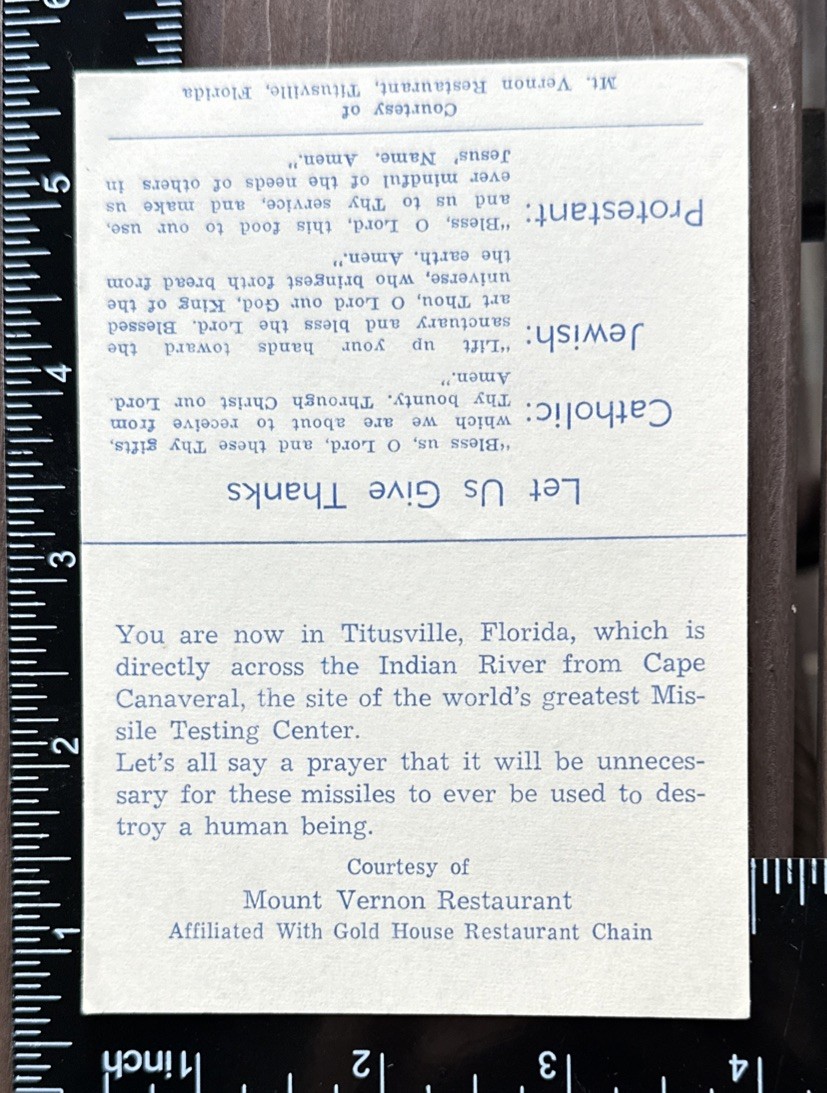 Let Us Give Thanks
Catholic:
"Bless us, O Lord, and these Thy gifts,
which we are about to receive from
Thy bounty. Through Christ our Lord.
Amen."
Jewish:
"Lift up your hands toward the
sanctuary and bless the Lord. Blessed
art Thou, O Lord our God, King of the
universe, who bringest forth bread from
the earth. Amen."
Protestant:
"Bless, O Lord, this food to our use,
and us to Thy service, and make us
ever mindful of the needs of others in
Jesus' Name. Amen."
Courtesy of
Mt. Vernon Restaurant, Titusville, Florida
You are now in Titusville, Florida, which is
directly across the Indian River from Cape
Canaveral, the site of the world's greatest Mis-
sile Testing Center.
Let's all say a prayer that it will be unneces-
sary for these missiles to ever be used to des-
troy a human being.
Courtesy of
Mount Vernon Restaurant
Affiliated With Gold House Restaurant Chain
5
4
3
2
1
1 inch
2
3
4